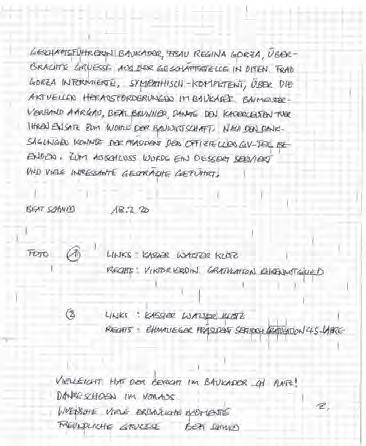 GESCHÄFTSFÜHRERIN BAUKADER, FRAU REGINA GORZA, ÜBER-
BRACHTE GRUESSE AUS DER GESCHÄFTSSTELLE IN OLTEN. FRAU
GORZA INFORMIERTE, SYMPATHISCH-KOMPETENT, ÜBER DIE
AKTUELLEN HERAUSFORDERUNGEN IM BAUKADER. BAUMEISTER-
VERBAND AARGAU, BEAT BRUNNER, DANKTE DEN KADERLEUTEN FUR
IHREN EINSATZ ZUM WOHLE DER BAUWIRTSCHAFT. NACH DEN DANK-
SAGUNGEN KONNTE DER PRÄSIDENT DEN OFFIZIELLEN GV-TEIL BE-
ENDEN. ZUM ABSCHLUSS WURDE EIN DESSERT SERVIERT
UND VIELE INTERESSANTE GESPRÄCHE GEFÜHRT.
BEAT SCHMID 18.2.20
FOTO ① LINKS : KASSIER WALTER KLOTZ
RECHTS : GRATULATION EHRENMITGLIED
② LINKS : KASSIER WALTER KLOTZ
RECHTS : EHMALIEGER PRÄSIDENT GRATULATION 45-JAHRE
VIELLEICHT HAT DER BERICHT IM BAUKADER .CH PLATZ!
DANKESCHOEN IM VORAUS
WUENSCHE VIELE ERBAULICHE MOMENTE
FREUNDLICHE GRUESSE BEAT SCHMID
2.